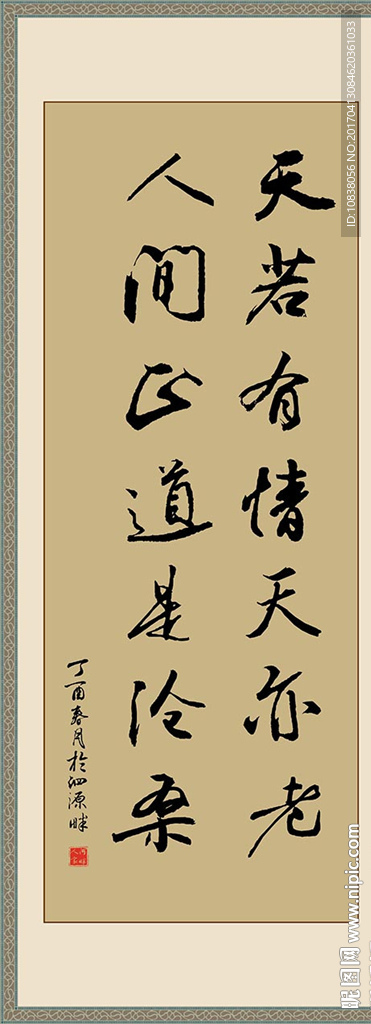 天若有情天亦老
人间正道是沧桑
丁酉春月於泗源畔
ID:10838056 NO.20170413084620361033
昵图网 www.nipic.com